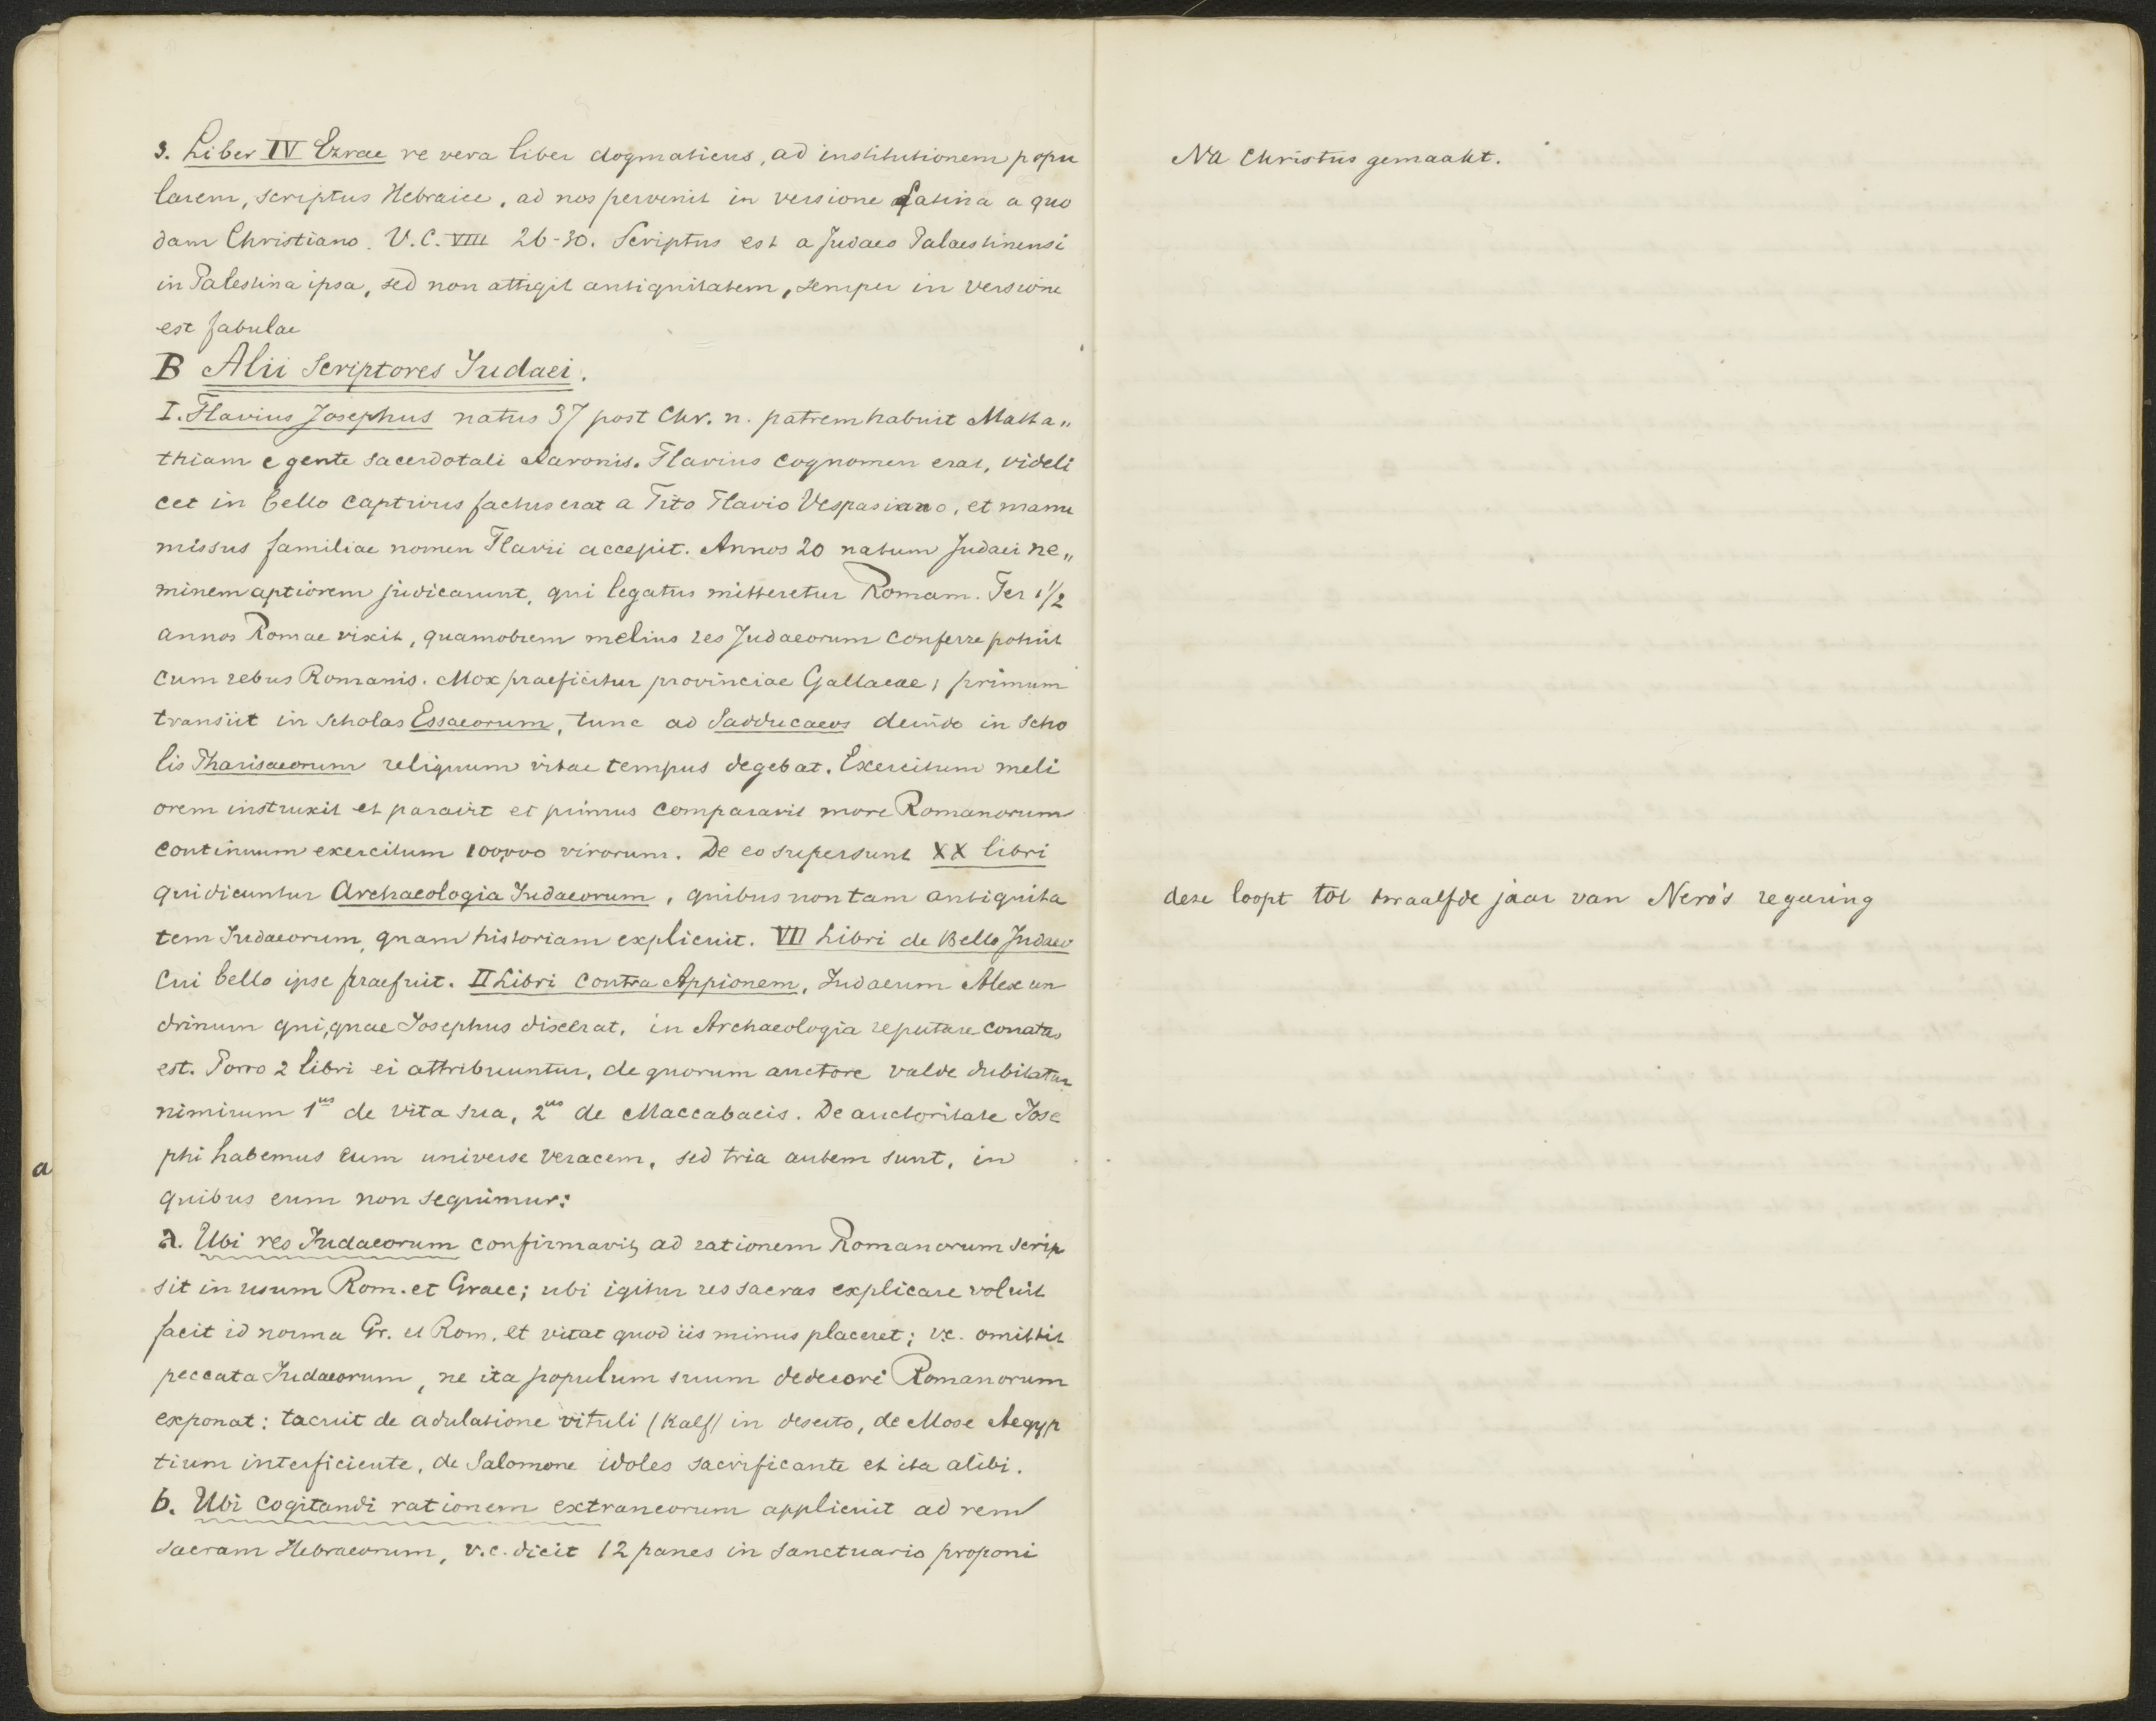 3. Liber IV Ezrae re vera liber dogmaticus, ad institutionem popu
larem, scriptus Hebraice, ad nos pervenit in versione Latina a quo
dam Christiano. V.C. VIII 26-30. Scriptus est a Judaeo Palaestinensi
in Palestina ipsa, sed non attigit antiquitatem, semper in versione
est fabulae
B Alii Scriptores Judaei.
I. Flavius Josephus natus 37 post Chr. n. patrem habuit Matta„
thiam e gente sacerdotali Aaronis. Flavius cognomen erat, videli
cet in bello captivus factus erat a Tito Flavio Vespasiano, et manu
missus familiae nomen Flavii accepit. Annos 20 natum Judaei ne„
minem aptiorem judicarunt, qui legatus mitteretur Romam. Per 1½
annos Romae vixit, quamobrem melius res Judaeorum conferre potuit
cum rebus Romanis. Mox praeficitur provinciae Gallaeae; primum
transiit in scholas Essaeorum, tunc ad Sadducaeos deinde in scho
lis Pharisaeorum reliquum vitae tempus degebat. Exercitum meli
orem instruxit et paravit et primus comparavit more Romanorum
continuum exercitum 100,000 virorum. De eo supersunt XX libri
qui dicuntur Archaeologia Judaeorum, quibus non tam antiquita
tem Judaeorum, quam historiam explicuit. VII Libri de Bello Judaeo
cui bello ipse praefuit. II Libri contra Appionem, Judaeum Alexan
drinum qui, quae Josephus dixerat, in Archaeologia reputare conatus
est. Porro 2 libri ei attribuuntur, de quorum auctore valde dubitatur
nimirum 1us de vita sua, 2us de Maccabaeis. De auctoritate Jose
phi habemus eum universe veracem, sed tria autem sunt, in
quibus eum non sequimur:
a. Ubi res Judaeorum confirmavit, ad rationem Romanorum scrip
sit in usum Rom. et Graec; ubi igitur res sacras explicare voluit
facit id norma Gr. et Rom. et vitat quod iis minus placeret; v.c. omittit
peccata Judaeorum, ne ita populum suum dedecori Romanorum
exponat: tacuit de adulatione vituli (Kalf) in deserto, de Mose Aegyp
tium interficiente, de Salomone idoles sacrificante et ita alibi.
b. Ubi cogitandi rationem extraneorum applicuit ad rem
sacram Hebraeorum, v.c. dicit 12 panes in sanctuario proponi
a
Na Christus gemaakt.
deze loopt tot twaalfde jaar van Nero's regeering